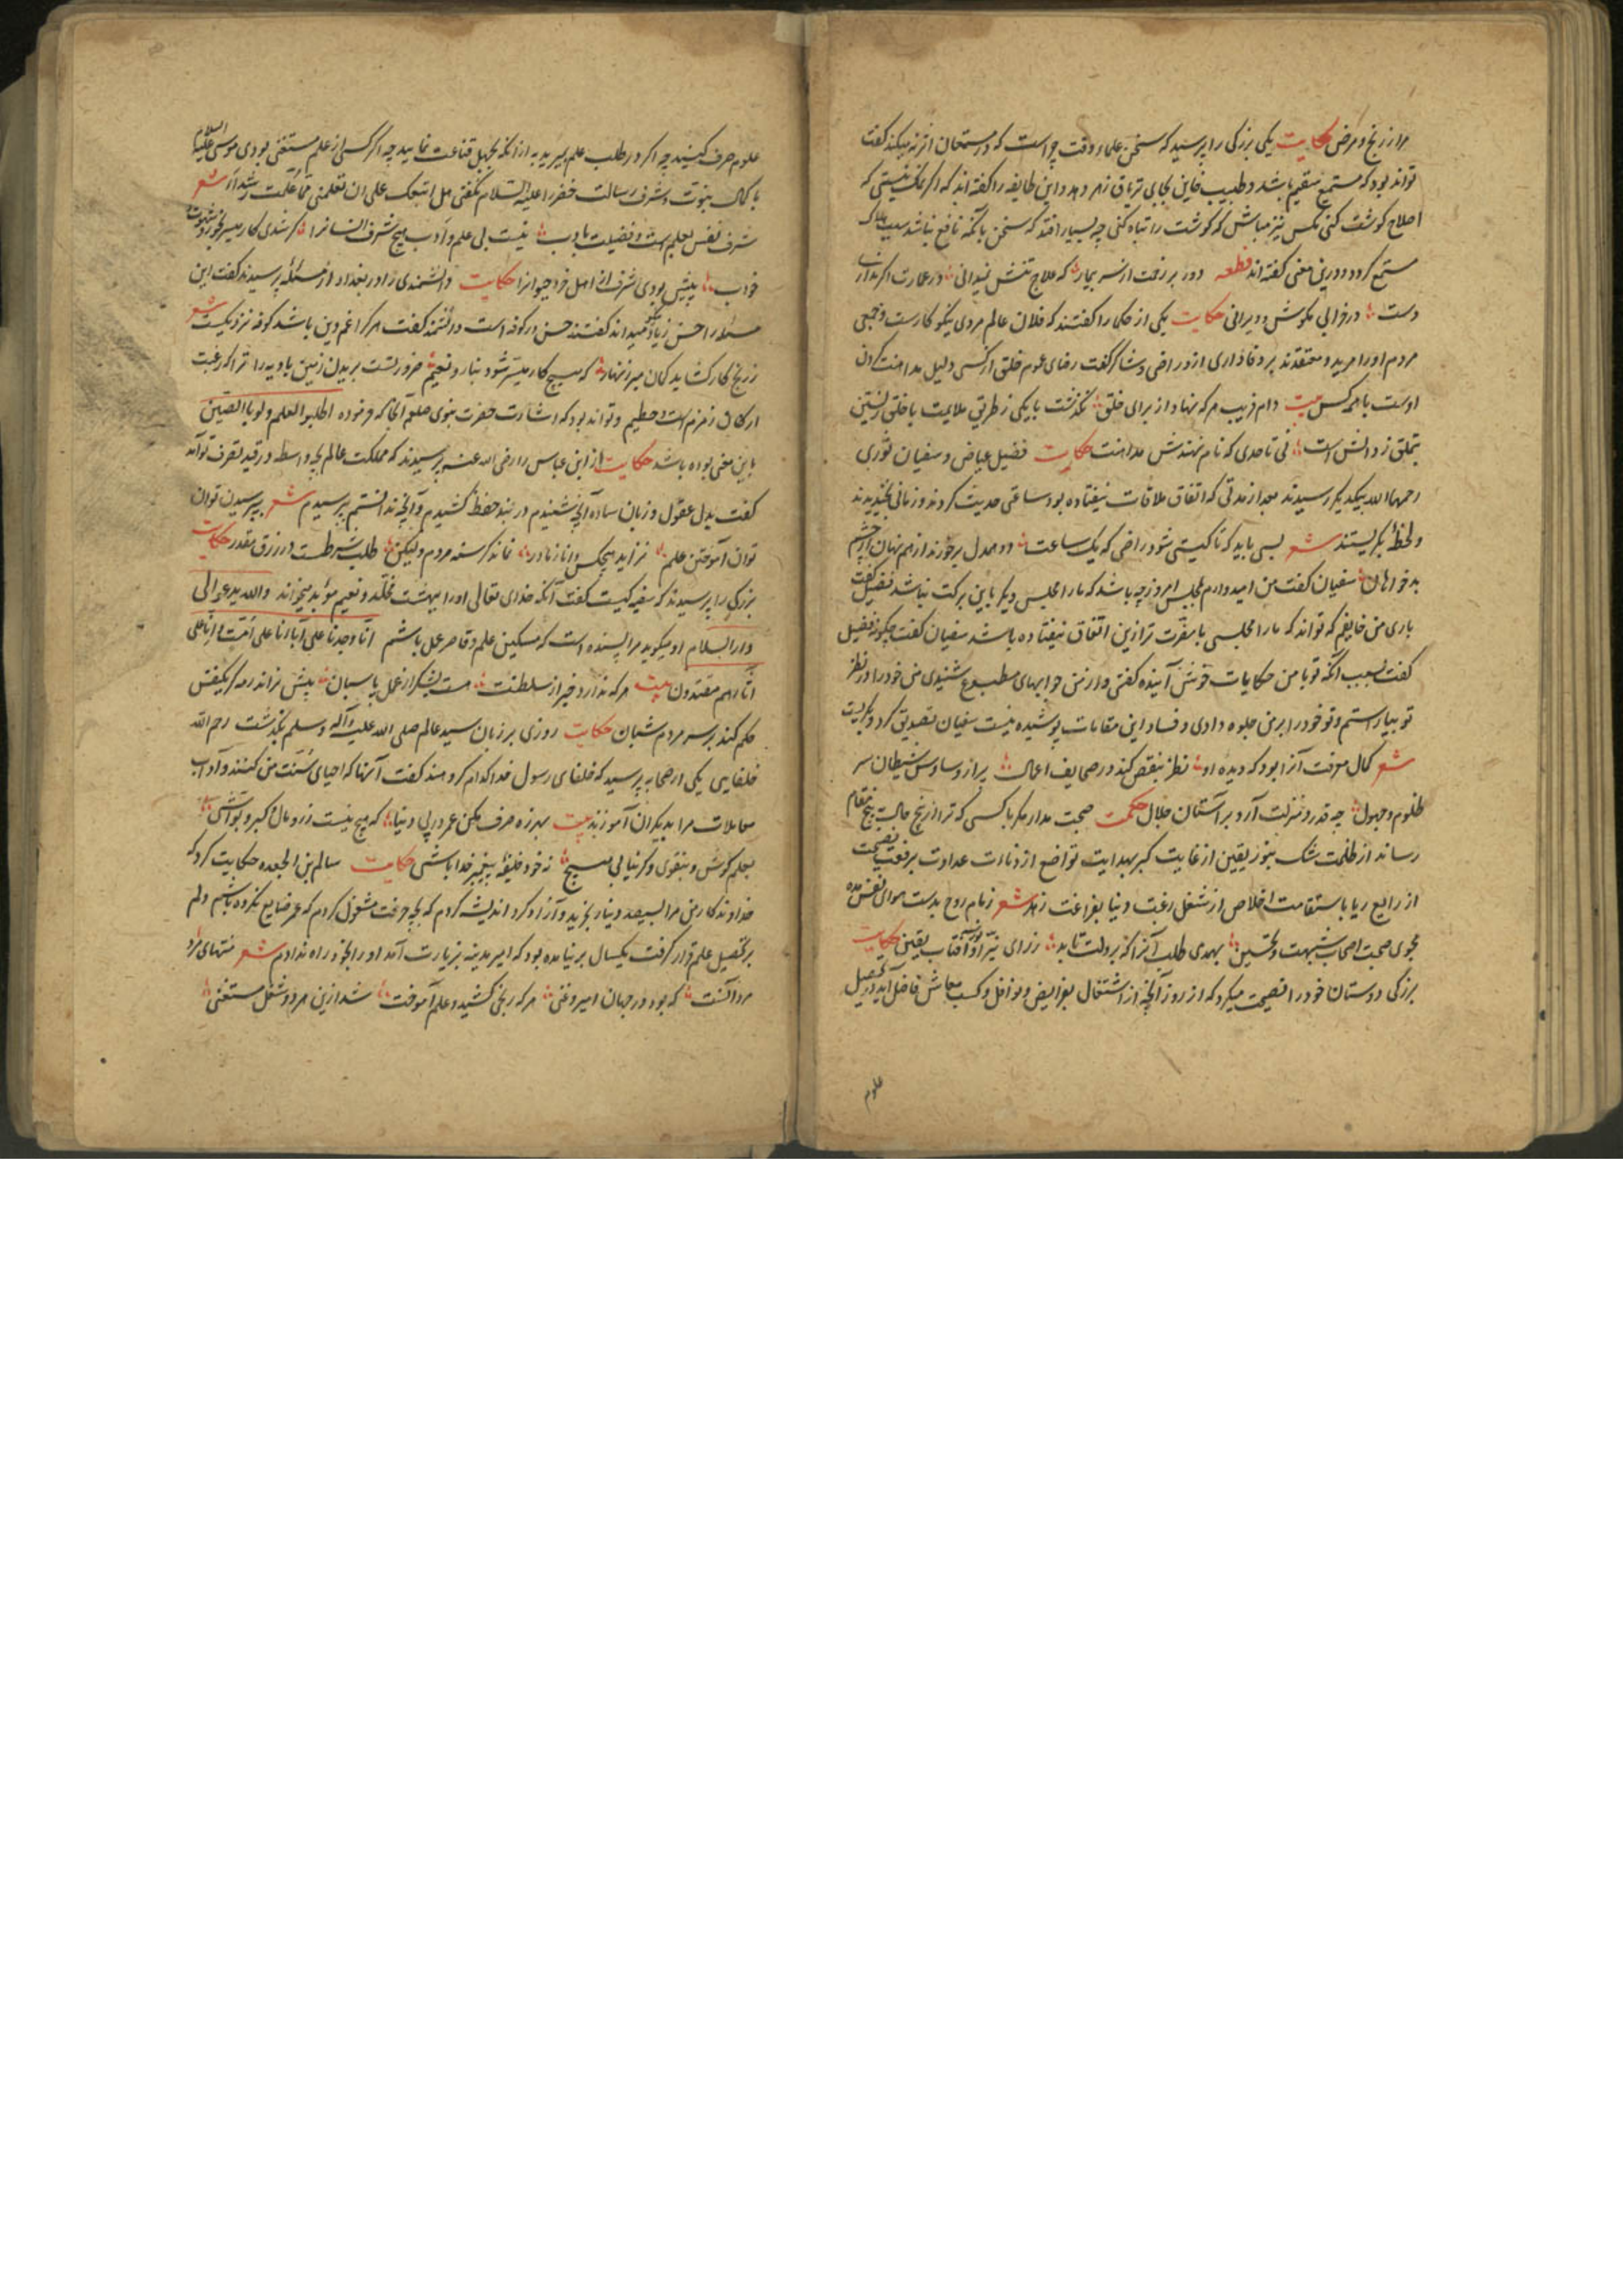 مرا از رنج و مرض حکایت یکی بزرگی را پرسید که سخن علماء وقت چراست که در مستمعان اثر نمیکند گفت
تواند بود که مستمع سقیم باشد و طبیب خاین بجای تریاق زهر دهد و این طایفه را گفته اند که اگر نمک نیستی که
اصلاح گوشت کنی مکس نیز مباش که گوشت را تباه کنی چه بسیار افتد که سخن با آنکه نافع نباشد سبب هلاک
مستمع گردد و درین معنی گفته اند قطعه دور بر رخت از سر بیمار که علاج تنش نمیدانی در عمارت اگر نداری
دست در خرابی مکوش و ویرانی حکایت یکی از حکما را گفتند که فلان عالم مردی نیکو کارست و جمعی
مردم او را مرید و معتقدند پر وفاداری ازو راضی و شاکر گفت رضای عموم خلق از کسی دلیل مداهنت کردن
اوست با همه کس بیت دام فریب هر که نهاد از برای خلق نگذشت با یکی ز طریق ملایمت با خلق زیستن
بتملق ز دانش است نی تا حدی که نام نهندش مداهنت حکایت فضیل عیاض و سفیان ثوری
رحمهما الله بیکدیگر رسیدند بعد از مدتی که اتفاق ملاقات نیفتاده بود ساعتی حدیث کردند و زمانی بخندیدند
و لحظه بگریستند شعر بسی باید که تا گیتی شود راضی که یک ساعت دو همدل برخورند از هم نهان از چشم
بدخواهان سفیان گفت من امیدوارم مجلس امروز چه باشد که ما را مجلس دیگر باین برکت نباشد فضیل گفت
باری من خایفم که تواند که ما را مجلسی با مضرت تر ازین اتفاق نیفتاده باشد سفیان گفت چگونه فضیل
گفت بسبب آنکه تو با من حکایات خوش آینده گفتی و از من جوابهای مطبوع شنیدی من خود را در نظر
تو بیاراستم و تو خود را بر من جلوه دادی و فساد این مقامات پوشیده نیست سفیان تصدیق کرد و بگریست
شعر کمال معرفت آنرا بود که دیده او نظر بنقص کند در صحایف اعمال پر از وساوس شیطان سر
ظلوم و جهول چه قدر و منزلت آرد بر آستان جلال حکمت صحبت مدار مگر با کسی که ترا از پنج حالت بپنج مقام
رساند از ظلمت شک بنور یقین از غایت کبر بهدایت تواضع از دناءت عداوت برفعت نصیحت
از رایع ریا باستقامت اخلاص از شغل رغبت دنیا بفراغت زهد شعر زمام روح بدست هوای نفس مده
مجوی صحبت اصحاب شبهت و تخسین بهمدی طلب آنرا که بر دلت تابد ز رای نیر او نور آفتاب یقین حکایت
بزرگی دوستان خود را نصیحت میکرد که از روز آنچه از اشتغال بفرایض و نوافل و کسب معاش فاضل آید در تحصیل
علوم
علوم صرف کنید چه اگر در طلب علم بمیرید به از آنکه بجهل قناعت نمایید چه اگر کسی از علم مستغنی بودی موسی علیه السلام
با کمال نبوت و شرف رسالت خضر را علیه السلام نگفتی هل اتبعک علی ان تعلمنی مما علمت رشدا شعر
شرف نفس بعلم است و فضیلت بادب نیست بی علم و ادب هیچ شرف انسانرا گر شدی کار میسر بخور و شهوت
خواب پیش بودی شرف از اهل خرد حیوانرا حکایت دانشمندی را در بغداد از مسئله پرسیدند گفت این
مسئله را حسن زیاد نیکو میداند گفتند حسن در کوفه است دانشمند گفت هر کرا غم دین باشد کوفه نزدیکست شعر
ز رنج کار گشاید گمان مبر زنهار که هیچ کار میسر شود بناز و نعیم ضرورتست بریدن زمین بادیه را ترا که رغبت
ارکان زمزم است و حطیم و تواند بود که اشارت حضرت نبوی صلوة آنجا که فرموده اطلبوا العلم و لو بالصین
باین معنی بوده باشد حکایت از ابن عباس را رضی الله عنه پرسیدند که مملکت عالم بچه واسطه در قید تصرف تو آمد
گفت بدل عقول و زبان ساده آنچه شنیدم در بند حفظ کشیدم و آنچه ندانستم بپرسیدم شعر بپرسیدن توان
توان آموختن علم نزاید هیچکس دانا ز مادر نماند گرسنه مردم ولیکن طلب شرطست در رزق مقدر حکایت
بزرگی را پرسیدند که سفیه کیست گفت آنکه خدای تعالی او را ببهشت مخلد و نعیم مؤبد میخواند والله یدعو الی
دار السلام او میگوید مرا پسنده است که مسکین علم و قاصر عمل باشم انا وجدنا علی آباءنا علی امة و انا علی
آثارهم مقتدون بیت هر که ندارد خبر از سلطنت هست بشکر از عمل پاسبان پیش نراند رمه گر یکنفس
حکم کند بر سر مردم شبان حکایت روزی بر زبان سید عالم صلی الله علیه و آله وسلم بگذشت رحم الله
خلفایی یکی از صحابه پرسید که خلفای رسول خدا کدام گروهند گفت آنها که احیای سنت من کنند و آداب
معاملات مرا بدیگران آموزند بیت بهرزه صرف مکن عمر در پی دنیا که هیچ نیست زر و مال و کبر و بوش
بعلم کوش و بتقوی و گر نیابی هیچ نه خود خلیفه پیغمبر خدا باشی حکایت سالم بن الجعده حکایت کرد که
خداوندگار من مرا بسیصد دینار بخرید و آزاد کرد اندیشه کردم که بچه حرفت مشغول گردم که عمر ضایع نکرده باشم دلم
بر تحصیل علم قرار گرفت یکسال بر نیامده بود که امیر مدینه بزیارت آمد او را بخود راه ندادم شعر منتهای مراد
مرد آنست که بود در جهان امیر و غنی هر که رنجی کشید و علم آموخت شد ازین هر دو شغل مستغنی